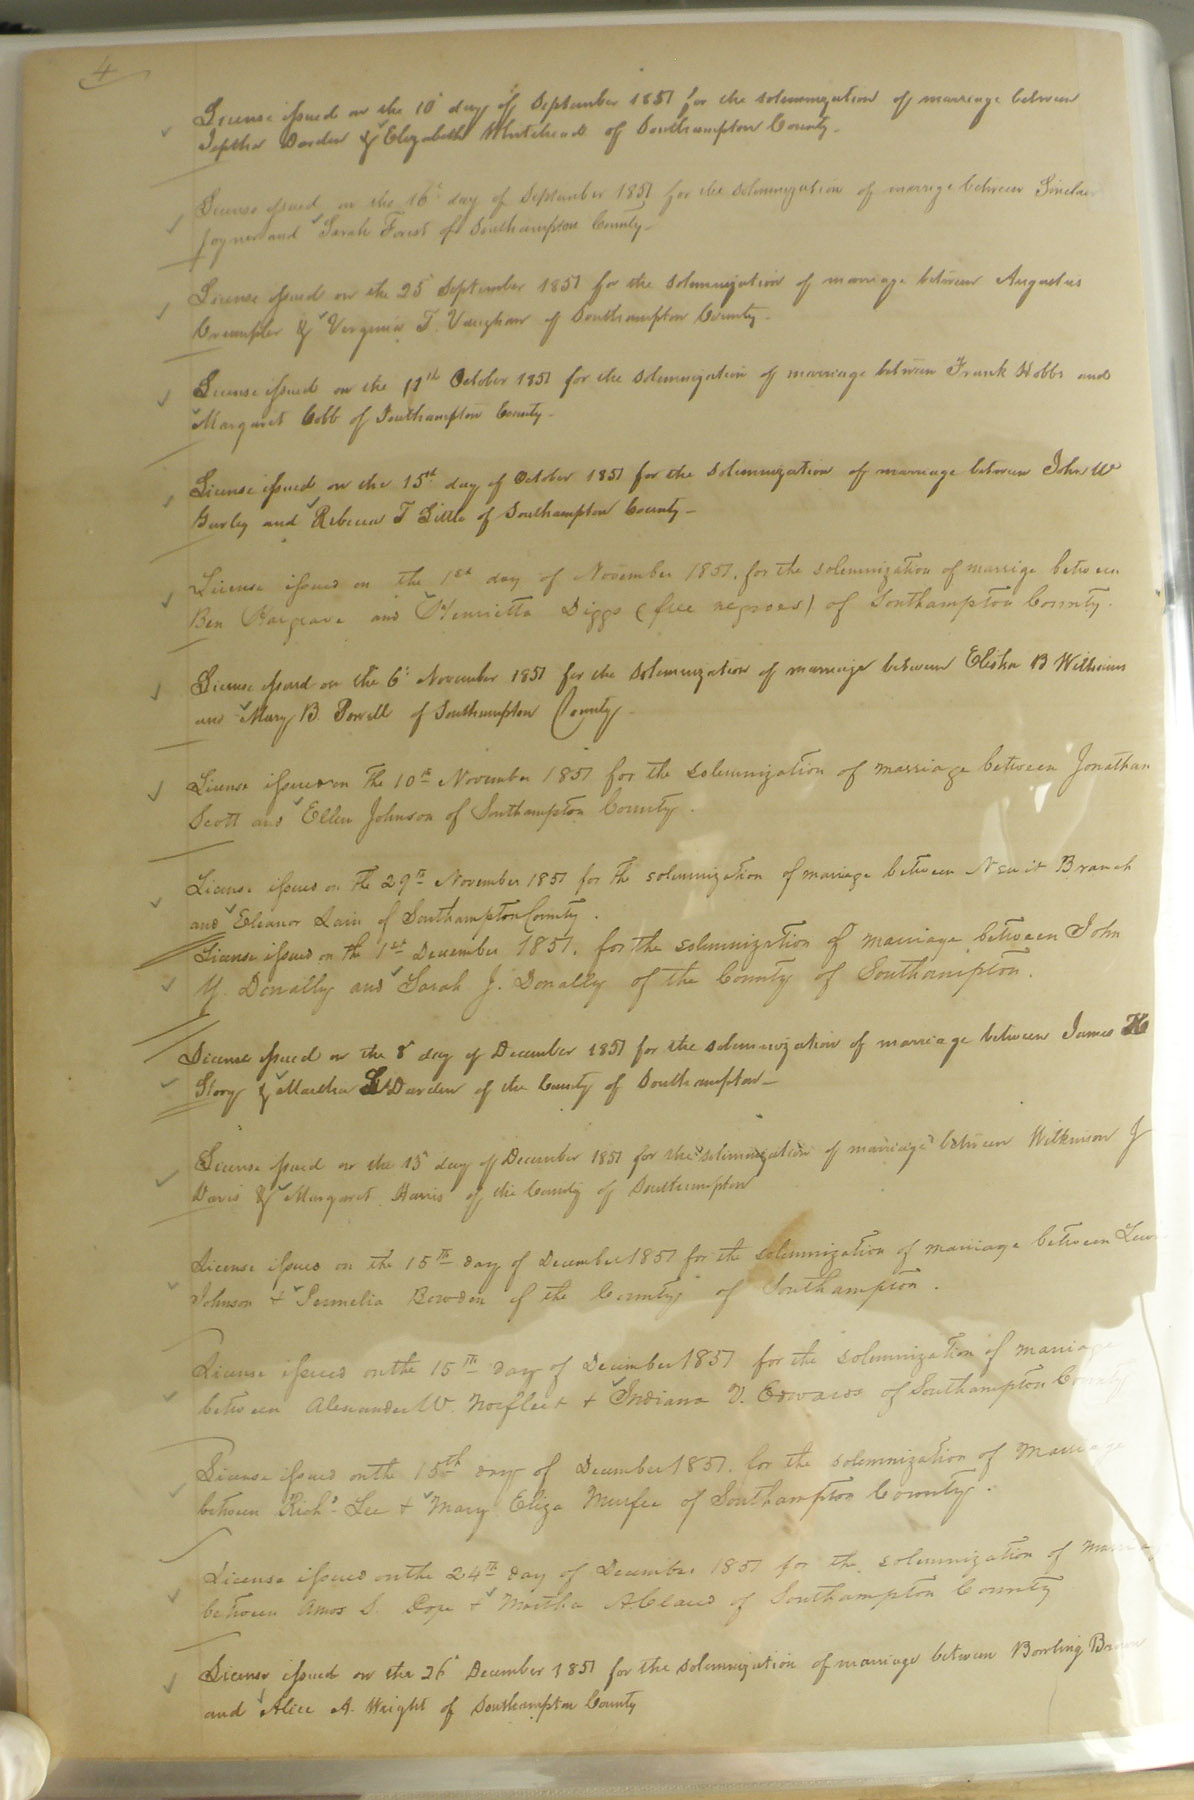 4
License issued on the 10 day of September 1851 for the solemnization of marriage between
Jeptha Darden & Elizabeth Whitehead of Southampton County.
License issued on the 16th day of September 1851 for the solemnization of marriage between Sinclair
Joyner and Sarah Forest of Southampton County
License issued on the 25 September 1851 for the solemnization of marriage between Augustus
Crumpler & Virginia T. Vaughan of Southampton County.
License issued on the 11th October 1851 for the solemnization of marriage between Frank Hobbs and
Margaret Cobb of Southampton County.
License issued on the 15th day of October 1851 for the solemnization of marriage between John W
Gurley and Rebecca T Little of Southampton County
License issued on the 1st day of November 1851. for the solemnization of marrige between
Ben Hargrave and Henrietta Diggs (free negroes) of Southampton County.
License issued on the 6th November 1851 for the solemnization of marriage between Elisha B Williams
and Mary B Powell of Southampton County
License issued on the 10th November 1851 for the solemnization of marriage between Jonathan
Scott and Ellen Johnson of Southampton County.
License issued on the 29th November 1851 for th solemnization of marriage between Newit Branch
and Eleanor Lain of Southampton County.
License issued on the 1st December 1851. for the solemnization of marriage between John
Y. Donally and Sarah J. Donally of the County of Southampton.
License issued on the 8 day of December 1851 for the solemnization of marriage between James H
Story & Martha L Darden of the County of Southampton
License issued on the 15 day of December 1851 for the solemnization of marriage between Wilkinson J
Davis & Margaret Harris of the County of Southampton
License issued on the 15th day of December 1851 for the solemnization of marriage between
Johnson + Permelia Bowden of the County of Southampton.
License issued on the 15th day of December 1851 for the solemnization of marriage
between Alexander W. Norfleet + Indiana V. Edwards of Southampton County
License issued on the 15th day of December 1851. for the solemnization of Marriage
between Richd. Lee + Mary Eliza Murfee of Southampton County.
License issued on the 24th day of December 1851 for the solemnization of
between Amos S. Pope + Martha of Southampton County
License issued on the 26 December 1851 for the solemnization of marriage between Bowling Brown
and Alice A. Wright of Southampton County